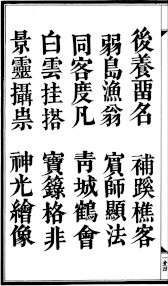 後養畱名　補蹊樵客
弱島漁翁　賓師顯法
同客度凡　青城鶴會
白雲挂搭　寶籙格非
景靈攝祟　神光繪像